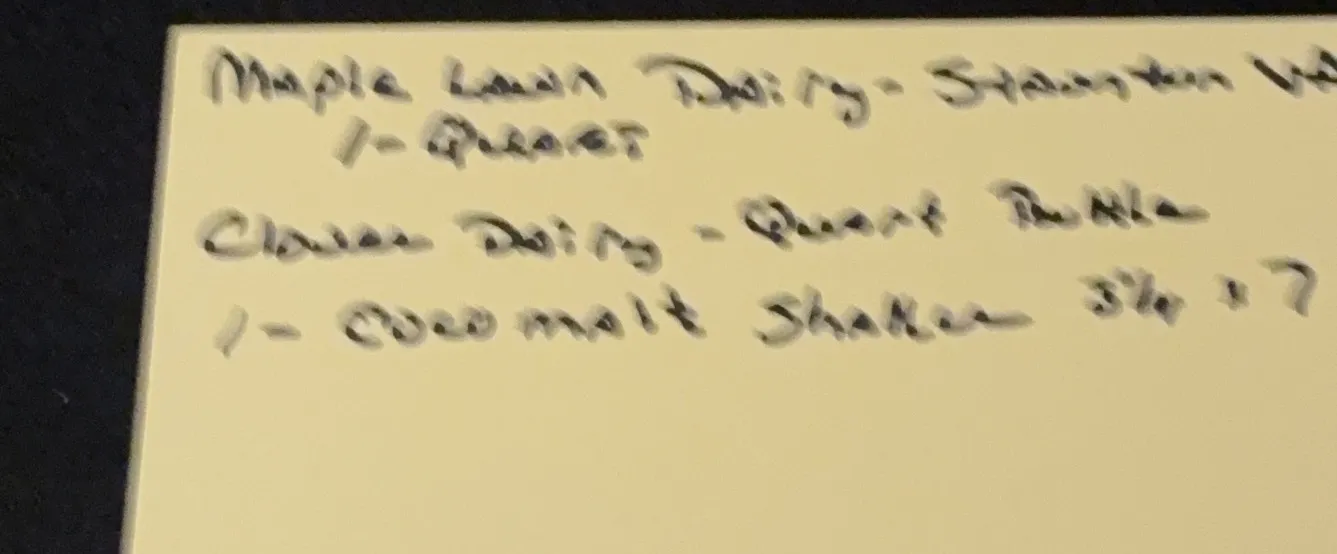 Maple Lawn Dairy - Staunton VA
1 - Quart
Clover Dairy - Quart Bottle
1 - Cocomalt Shaker 3 1/4 x 7